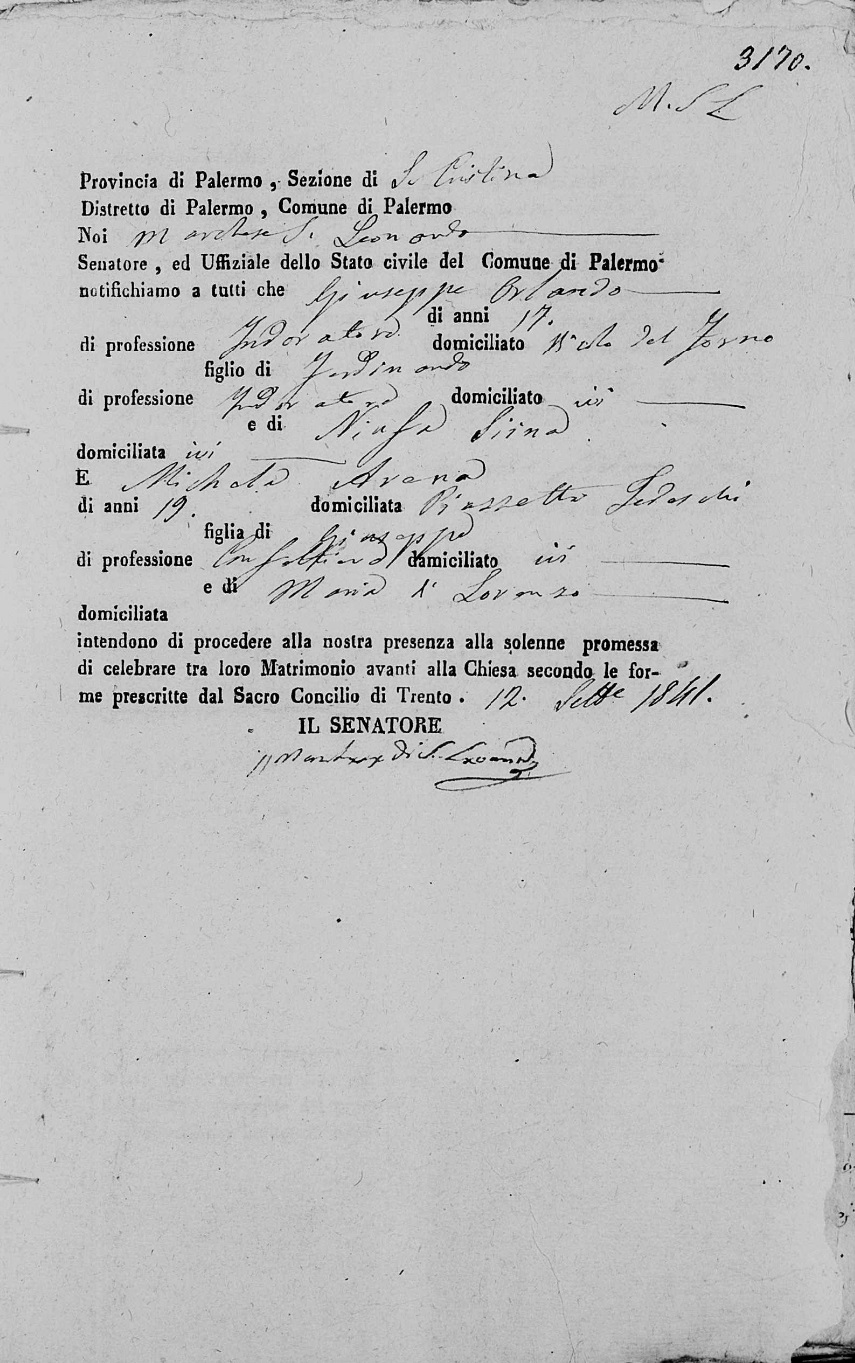 3170.
M. S L
Provincia di Palermo, Sezione di S. Cristina
Distretto di Palermo, Comune di Palermo
Noi Marchese S. Leonardo
Senatore, ed Uffiziale dello Stato civile del Comune di Palermo
notifichiamo a tutti che Giuseppe Orlando
di anni 17.
di professione Indoratore domiciliato Vicolo del Forno
figlio di Ferdinando
di professione Indoratore domiciliato ivi
e di Ninfa Siino
domiciliata ivi
E Michela Arena
di anni 19. domiciliata Piazzetta Tedeschi
figlia di Giuseppe
di professione domiciliato ivi
e di Maria di Lorenzo
domiciliata
intendono di procedere alla nostra presenza alla solenne promessa
di celebrare tra loro Matrimonio avanti alla Chiesa secondo le for-
me prescritte dal Sacro Concilio di Trento. 12. Sett.e 1841.
IL SENATORE
Il Marchese di S. Leonardo